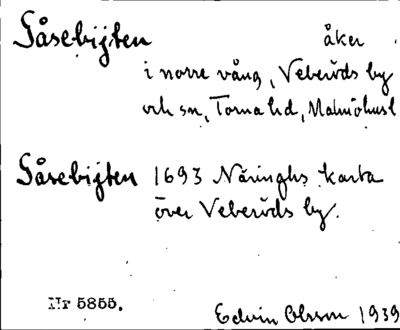 Gåsebijten åker
i norre vång, Veberöds by
och sn, Torna hd, Malmöhusl
Gåsebijten 1693 Näringhs karta
över Veberöds by.
Nr 5855. Edvin Olsson 1939